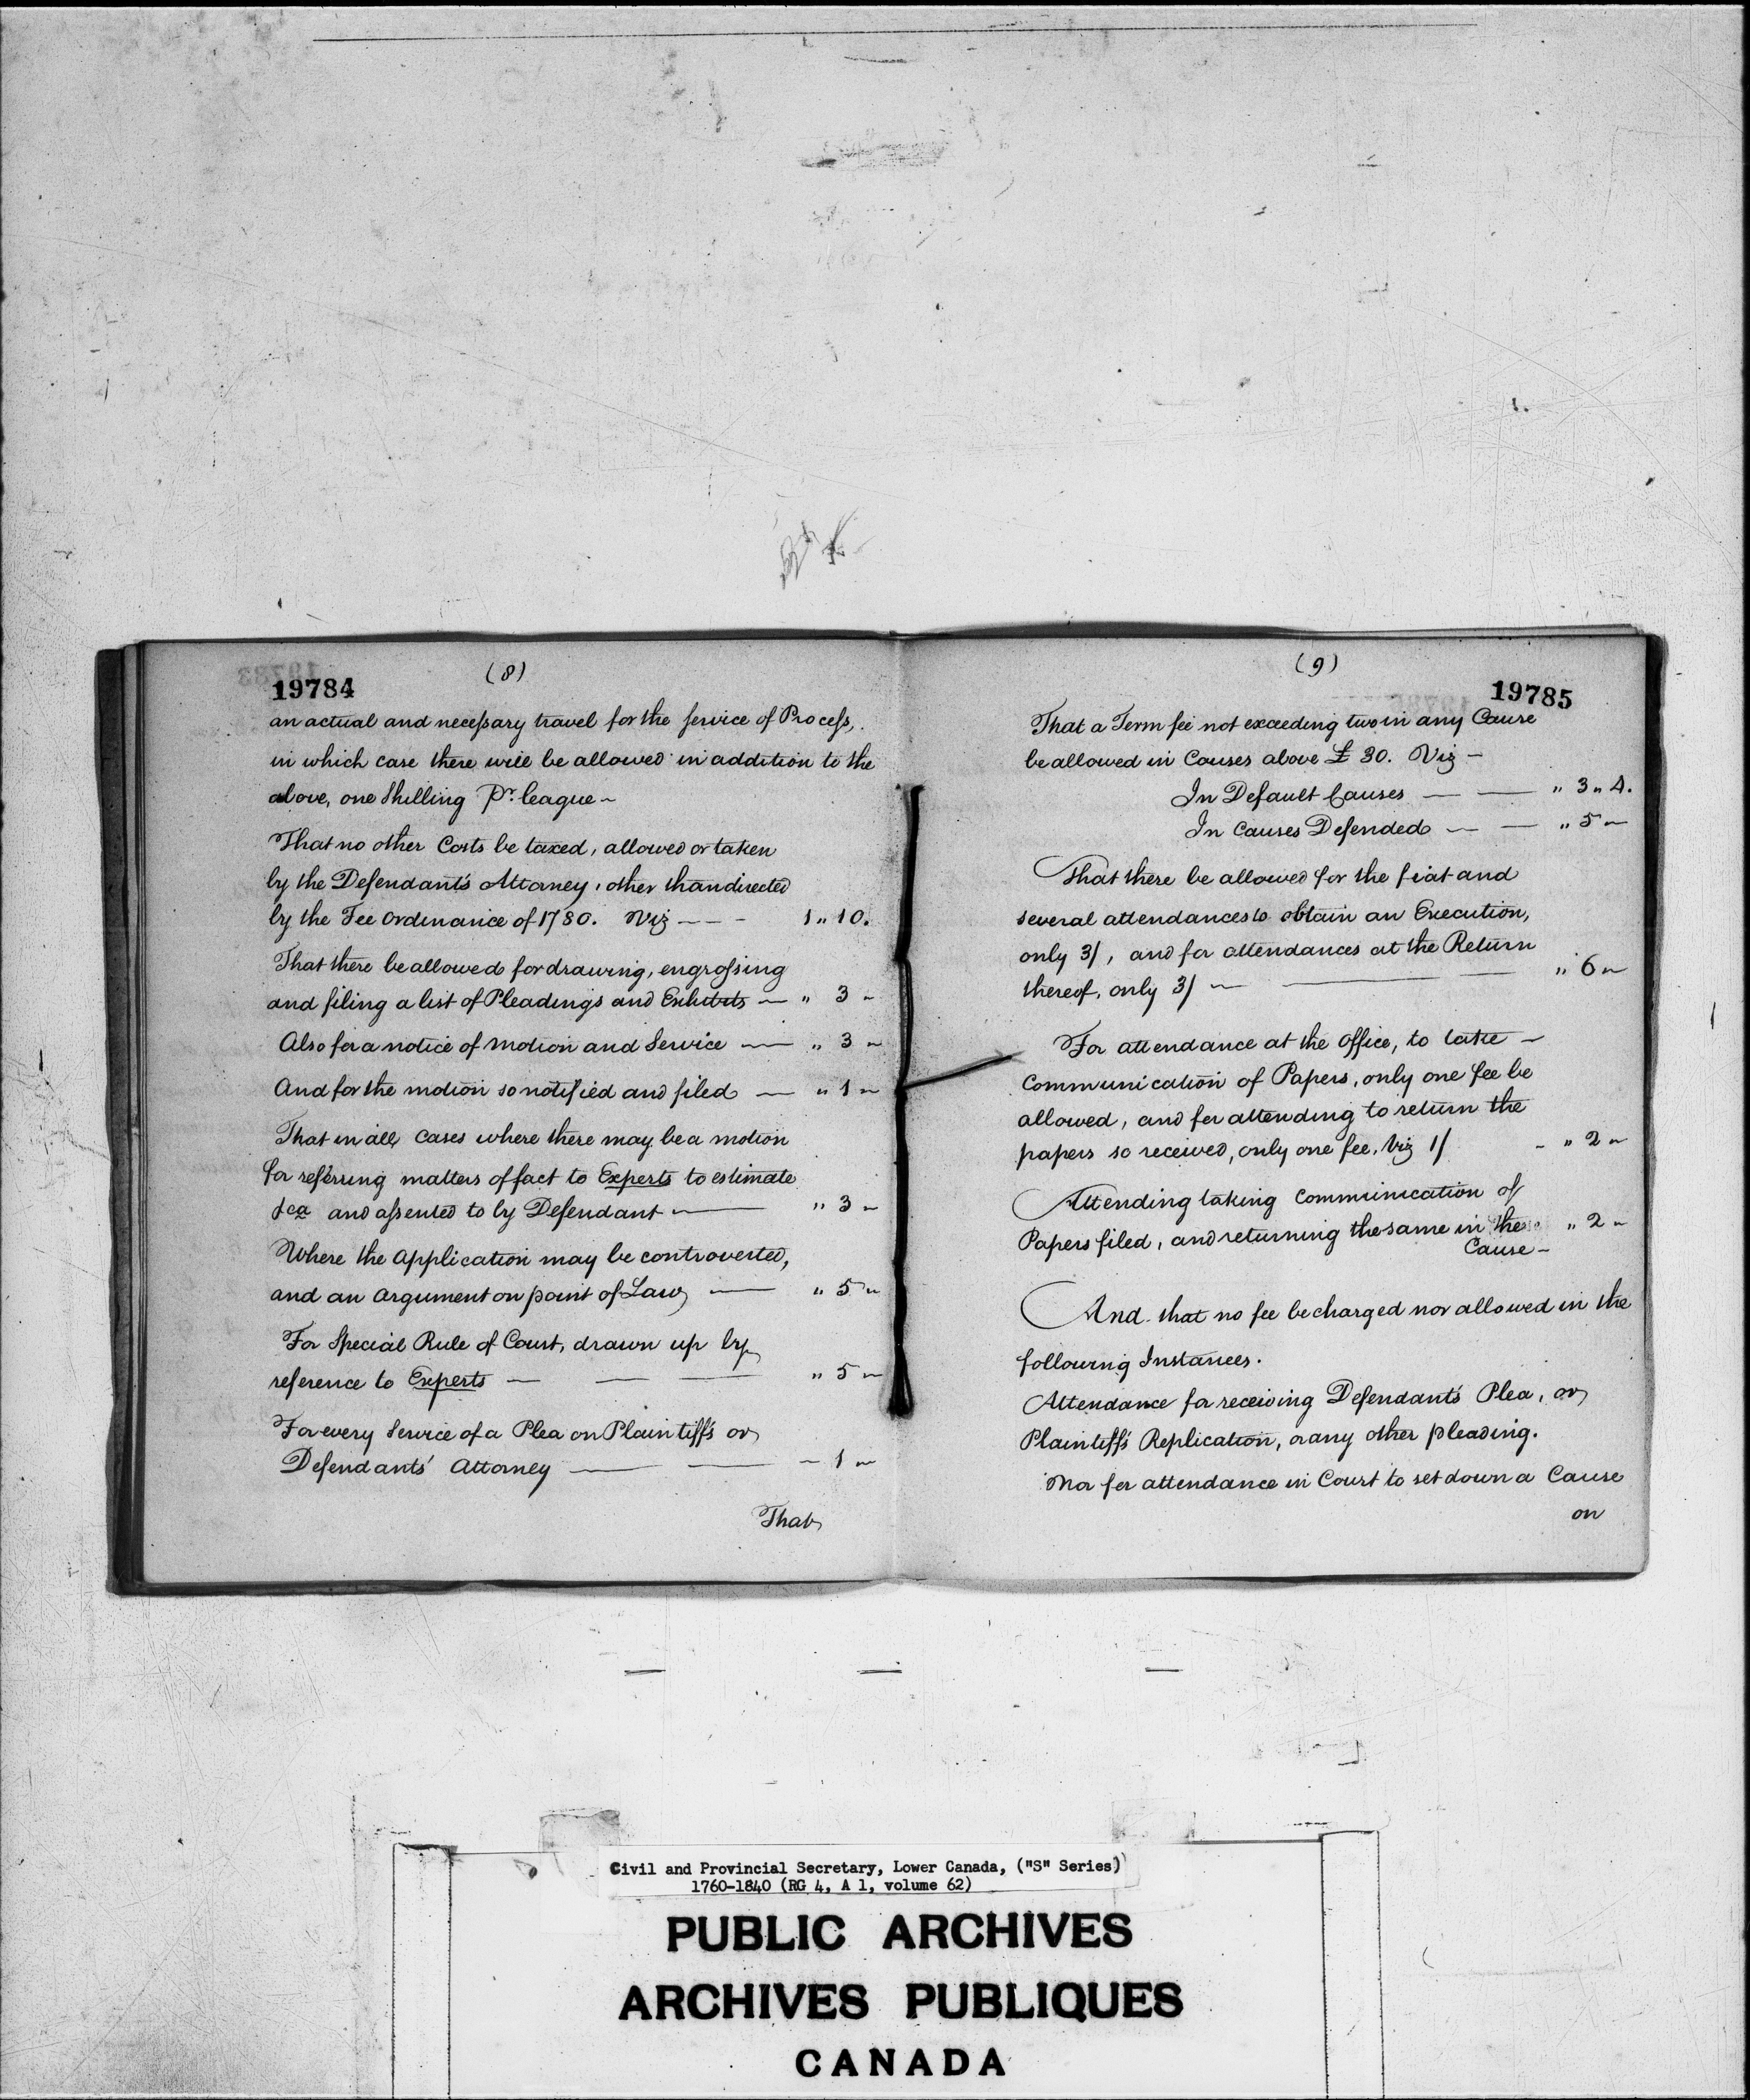 (8)
19784
an actual and necessary travel for the service of Process,
in which case there will be allowed in addition to the
above, one Shilling Pr. league ~
That no other Costs be taxed, allowed or taken
by the Defendant's Attorney, other than directed
by the Fee Ordinance of 1780. Viz — — - 1 " 10.
That there be allowed for drawing, engrossing
and filing a list of Pleadings and Exhibits — " 3 ~
Also for a notice of motion and Service — " 3 ~
And for the motion so notified and filed — " 1 ~
That in all cases where there may be a motion
for referring matters of fact to Experts to estimate
&ca and assented to by Defendant — " 3 ~
Where the application may be controverted,
and an argument on point of Law — " 5 ~
For Special Rule of Court, drawn up by
reference to Experts — — — " 5 ~
For every Service of a Plea on Plaintiff's or
Defendants' Attorney — — ~ 1 ~
That
(9)
19785
That a Term fee not exceeding two in any Cause
be allowed in Causes above £ 30. Viz —
In Default Causes — — " 3 " 4.
In Causes Defended — — " 5 ~
That there be allowed for the fiat and
several attendances to obtain an Execution,
only 3/, and for attendances at the Return
thereof, only 3/ — — — " 6 ~
For attendance at the Office, to take —
Communication of Papers, only one fee be
allowed, and for attending to return the
papers so received, only one fee, Viz 1/ - " 2 ~
Attending taking Communication of
Papers filed, and returning the same in the " 2 ~
Cause —
And that no fee be charged nor allowed in the
following Instances.
Attendance for receiving Defendant's Plea, or
Plaintiff's Replication, or any other pleading.
Nor for attendance in Court to set down a Cause
on
Civil and Provincial Secretary, Lower Canada, ("S" Series)
1760-1840 (RG 4, A 1, volume 62)
PUBLIC ARCHIVES
ARCHIVES PUBLIQUES
CANADA